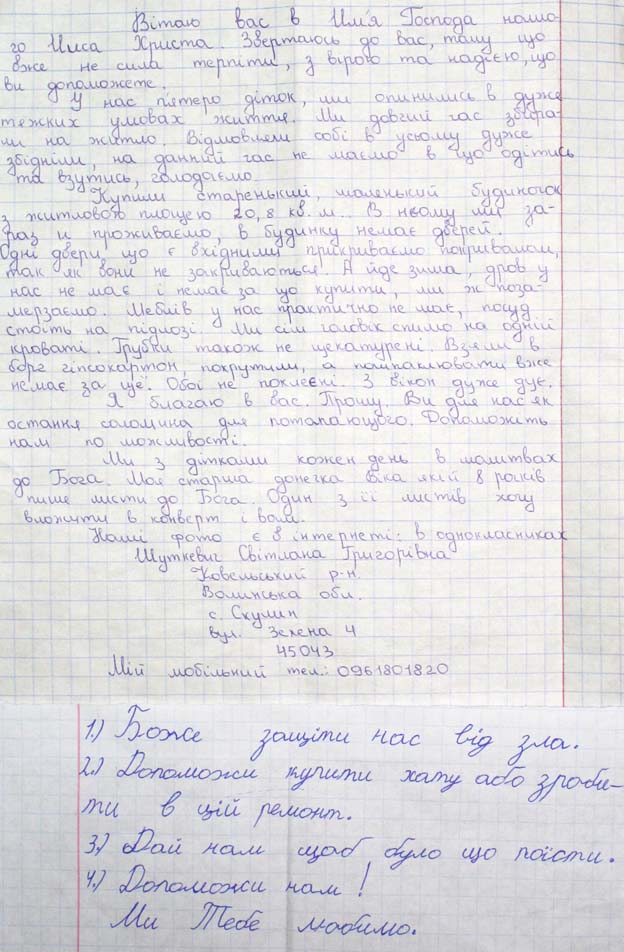 Вітаю вас в Им'я Господа нашо-
го Ииса Христа. Звертаюсь до вас, тому що
вже не сила терпіти, з вірою та надією, що
ви допоможете.
У нас п'ятеро діток, ми опинились в дуже
тежких умовах життя. Ми довгий час збира-
ли на житло. Відмовляли собі в усьому дуже
збідніли, на данний час не маємо в що одітись
та взутись, голодаємо.
Купили старенький, маленький будиночок
з житловою площею 20,8 кв.м. В ньому ми за-
раз и проживаємо, в будинку немає дверей.
Одні двери, що є вхідними прикриваємо покривалам,
так як вони не закриваються. А йде зима, дров у
нас не має і немає за що купити, ми ж поза-
мерзаємо. Меблів у нас практично не має, посуд
стоїть на підлозі. Ми сім чоловік спимо на одній
кроваті. Грубки також не щекатурені. Взяли в
борг гіпсокартон, покрутили, а пашпаклювати вже
немає за ще. Обої не поклеєні. З вікон дуже дує.
Я благаю в вас. Прошу. Ви для нас як
остання соломина для потапающого. Допоможіть
нам по можливості.
Ми з дітками кожен день в молитвах
до Бога. Моя старша донечка Віка якій 8 років
пише листи до Бога. Один з її листів хочу
вложити в конверт і вам.
Наши фото є в інтернеті: в однокласниках
Шуткевич Світлана Григорівна
Ковельський р-н.
Волинська обл.
с. Скулин
вул. Зелена 4
45043
Мій мобільний тел.: 0961801820
1.) Боже защіти нас від зла.
2.) Допоможи купити хату або зроби-
ти в цій ремонт.
3.) Дай нам щоб було що поїсти.
4.) Допоможи нам!
Ми Тебе любимо.